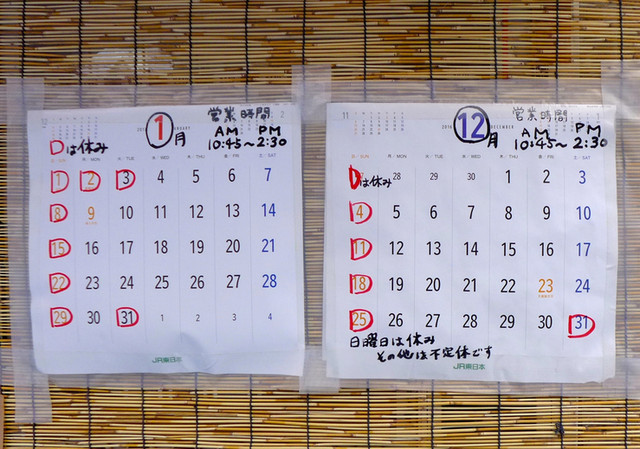 1月
営業時間
AM PM
10:45~2:30
Dは休み
日/SUN 月/MON 火/TUE 水/WED 木/THU 金/FRI 土/SAT
1 2 3 4 5 6 7
8 9 10 11 12 13 14
15 16 17 18 19 20 21
22 23 24 25 26 27 28
29 30 31 1 2 3 4
JR東日本
11
12月
DECEMBER
営業時間
AM PM
10:45~2:30
日/SUN 月/MON 火/TUE 水/WED 木/THU 金/FRI 土/SAT
は休み 28 29 30 1 2 3
4 5 6 7 8 9 10
11 12 13 14 15 16 17
18 19 20 21 22 23 24
25 26 27 28 29 30 31
日曜日は休み
その他は不定休です
JR東日本